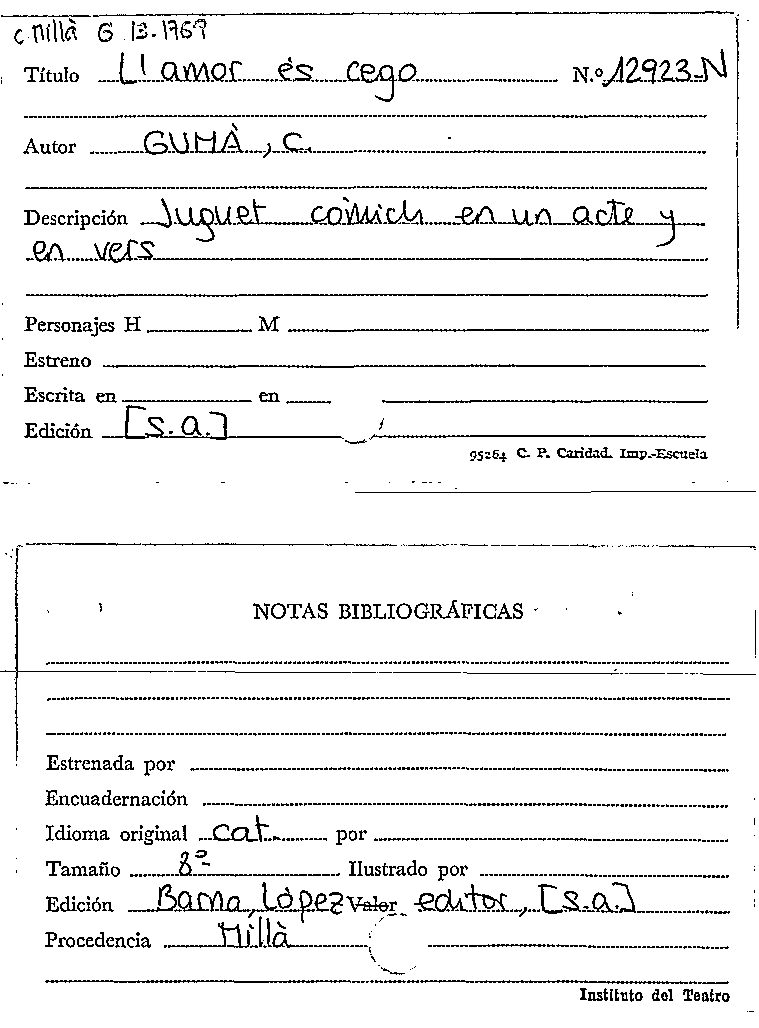 c Millà G 13.1769
Título L'amor és cego N.º 12923-N
Autor GUMÀ, C.
Descripción Juguet còmich en un acte y
en vers
Personajes H M
Estreno
Escrita en en
Edición [s.a.]
95264 C. P. Caridad. Imp.-Escuela
NOTAS BIBLIOGRÁFICAS
Estrenada por
Encuadernación
Idioma original cat. por
Tamaño 8º Ilustrado por
Edición Barna, López Valor editor, [s.a.]
Procedencia Millà
Instituto del Teatro